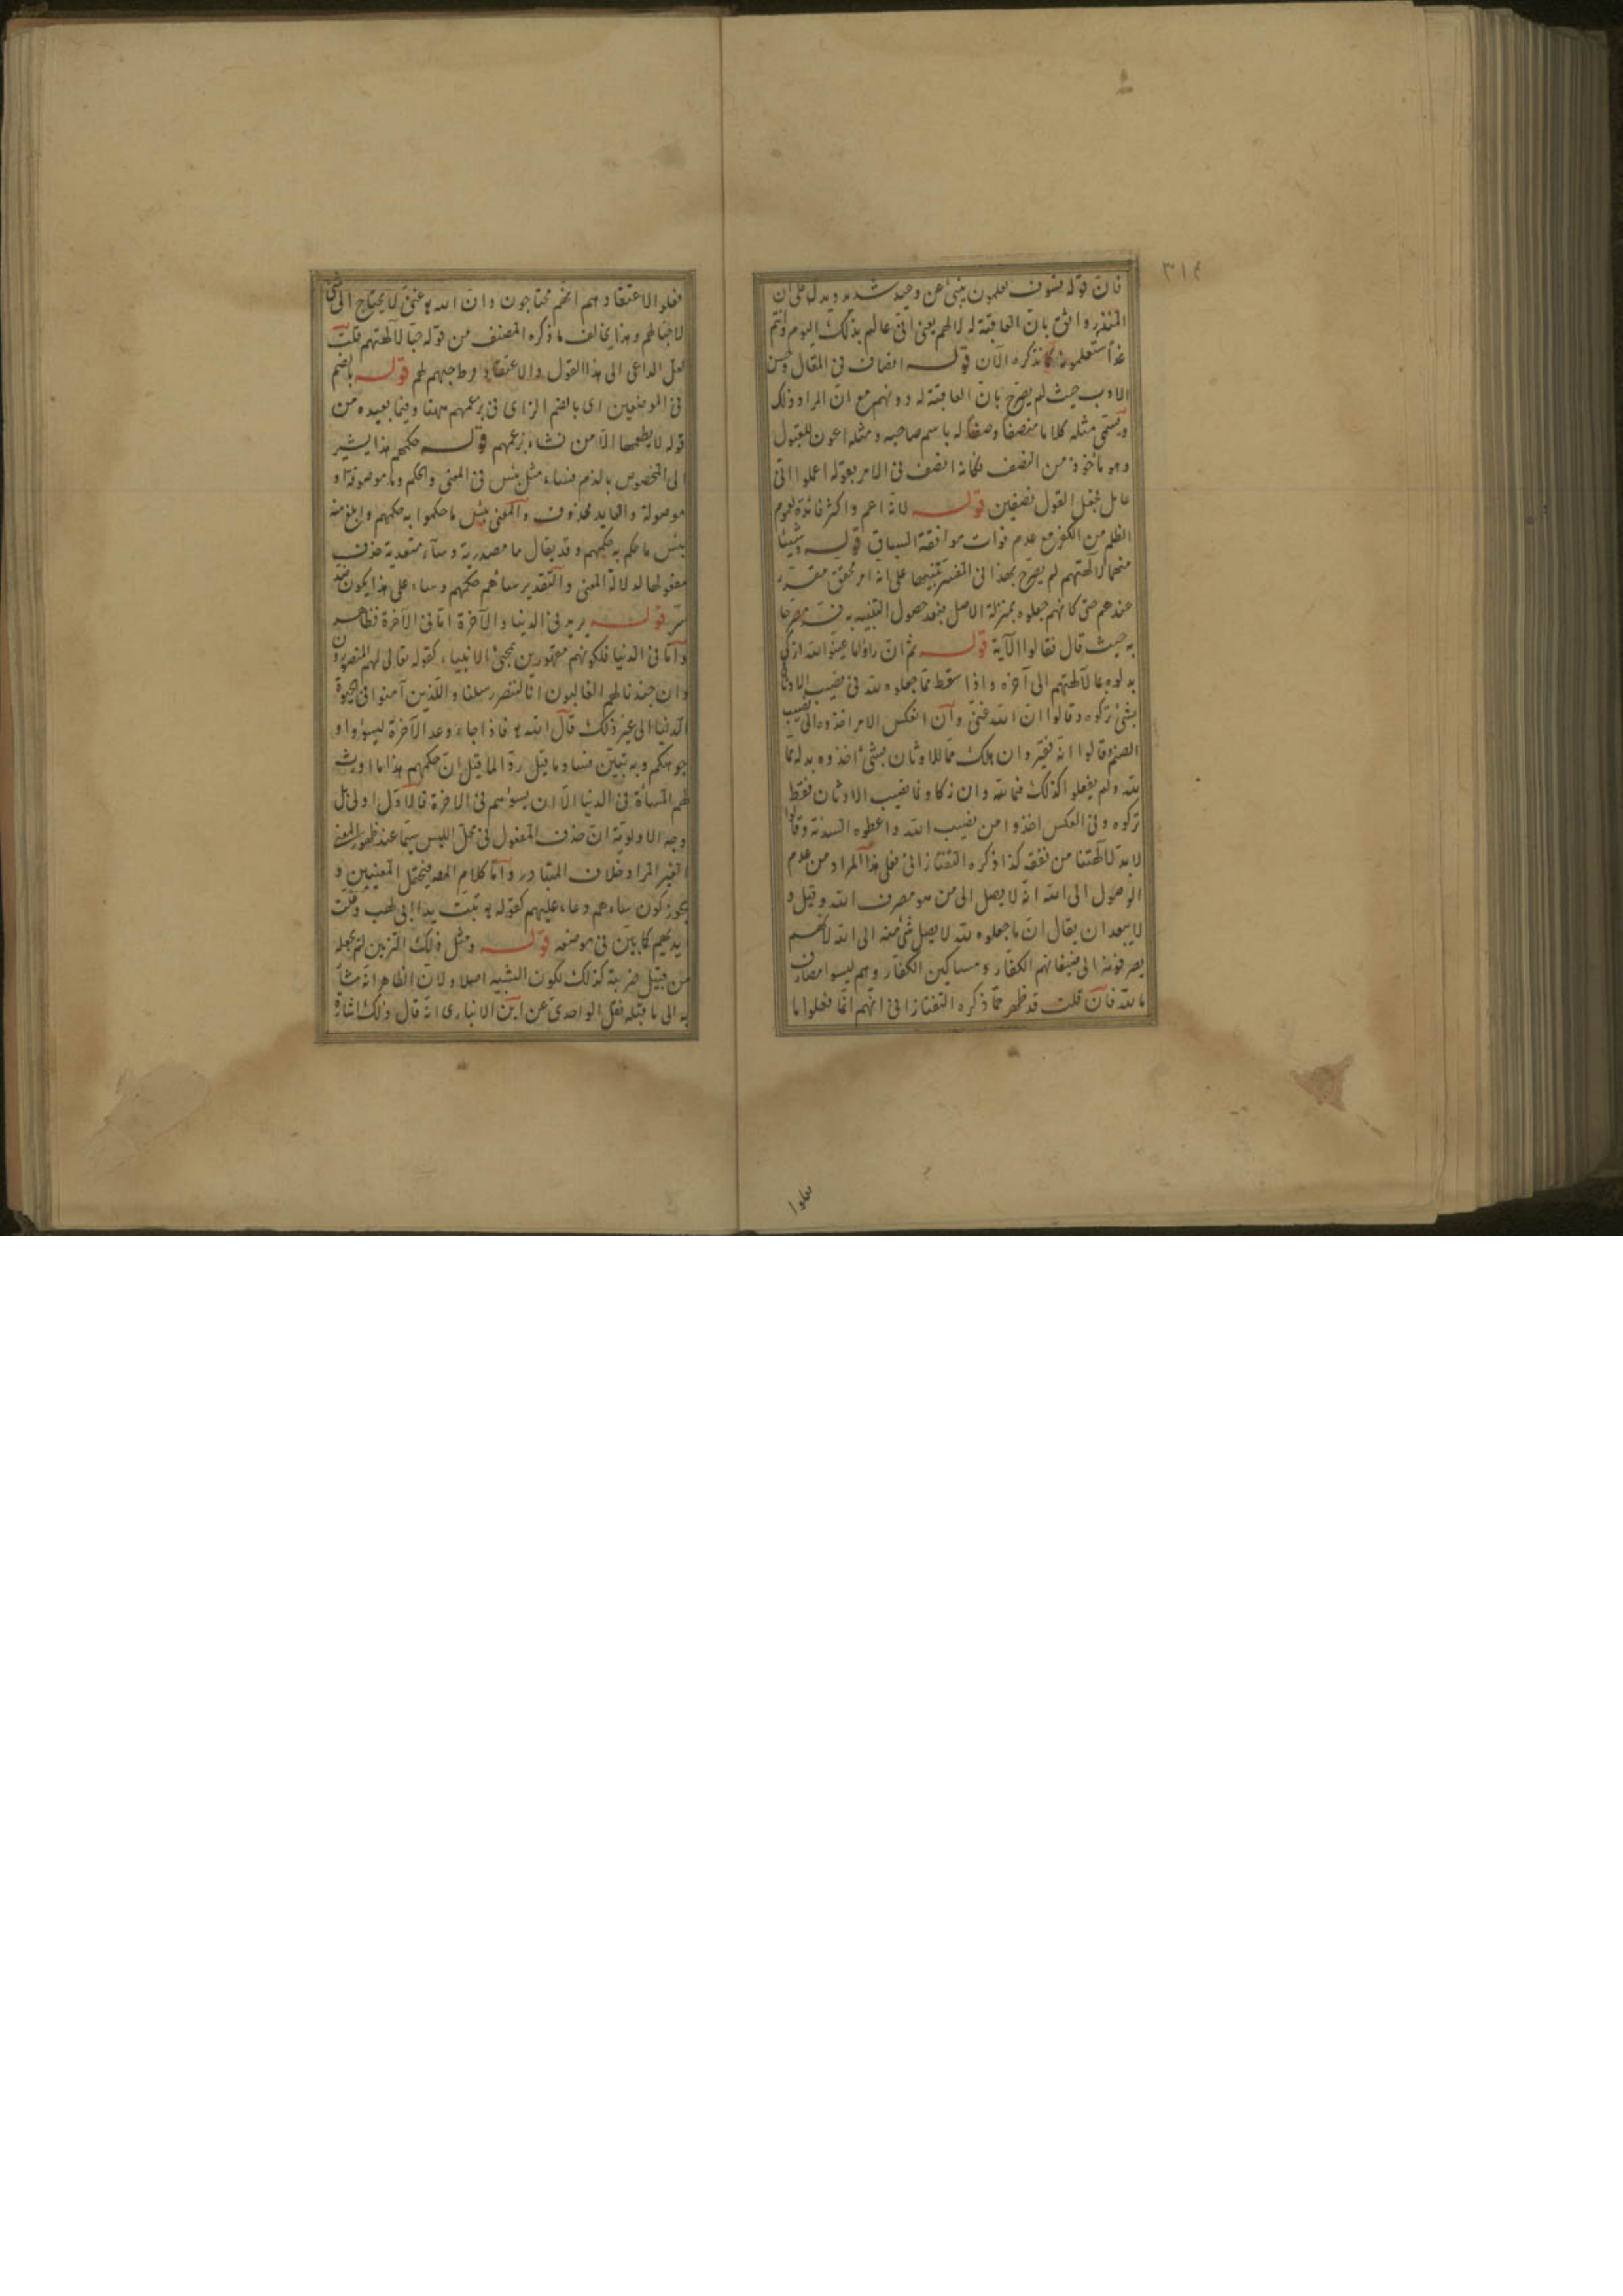 ٣١٤
فان قوله فسوف تعلمون ينبئ عن وعيد شديد ويدل على ان
المنذر واثق بان العاقبة له لا لهم يعنى انى عالم بذلك اليوم وانتم
غدا ستعلمون كما نذكره الآن قوله انصاف فى المقال وحسن
الادب حيث لم يصرح بان العاقبة له دونهم مع ان المراد ذلك
ويسمى مثله كلاما منصفا وصفا له باسم صاحبه ومثله اعون للقبول
وهو مأخوذ من النصف فكانه انصف فى الامر بقوله اعملوا انى
عامل فجعل القول نصفين قوله لانه اعم واكثر فائدة لعموم
الظلم من الكفر مع عدم فوات موافقة السياق قوله وشيئا
منهما لآلهتهم لم يصرح بهذا فى المفسر تنبيها على انه امر محقق مقرر
عندهم حتى كانهم جعلوه بمنزلة الاصل فبعد حصول التنبيه به فسر مصرحا
به حيث قال فقالوا الآية قوله ثم ان راوا ما عينوا لله ازكى
بدلوه بما لآلهتهم الى آخره واذا سقط مما جعلوه لله فى نصيب الاوثان
بشئ تركوه وقالوا ان الله غنى وان انعكس الامر اخذوه الى نصيب
الصنم وقالوا انه فقير وان هلك مما للاوثان بشئ اخذوه بدله مما
لله ولم يفعلوا كذلك فيما لله وان زكا ونما نصيب الاوثان فقط
تركوه وفى العكس اخذوا من نصيب الله واعطوه السدنة وقالوا
لا بد لآلهتنا من نفقة كذا ذكره التفتازانى فعلى هذا المراد من عدم
الوصول الى الله انه لا يصل الى من هو مصرف الله وقيل و
لا يبعد ان يقال ان ما جعلوه لله لا يصل شئ منه الى الله لانهم
يصرفونه الى ضيفانهم الكفار ومساكين الكفار وهم ليسوا مصارف
ما لله فان قلت قد ظهر مما ذكره التفتازانى انهم انما فعلوا ما
فعلوا
فعلوا لاعتقادهم انهم محتاجون وان الله تع غنى لا يحتاج الى شئ
لا حبا لهم وهذا يخالف ما ذكره المصنف من قوله حبا لآلهتهم قلت
لعل الداعى الى هذا القول والاعتقاد وحبهم لهم قوله بالضم
فى الموضعين اى بالضم الزاى فى بزعمهم ههنا وفيما بعيده من
قوله لا يطعمها الا من نشاء بزعمهم قوله حكمهم هذا يشير
الى المخصوص بالذم فساء مثل بئس فى المعنى والحكم وما موصوفة او
موصولة والعايد محذوف والمعنى بئس ما حكموا به حكمهم وابلغ منه
بئس ما حكم به حكمهم وقد يقال ما مصدرية وساء متعدية حذف
مفعولها لدلالة المعنى والتقدير ساءهم حكمهم وساء على هذا يكون ضد
سر قوله يريد فى الدنيا والآخرة اما فى الآخرة فظاهر
واما فى الدنيا فلكونهم مقهورين بمجئ الانبياء كقوله تعالى لهم المنصورون
وان جندنا لهم الغالبون انا لننصر رسلنا والذين آمنوا فى الحيوة
الدنيا الى غير ذلك قال الله تع فاذا جاء وعد الآخرة ليسوؤا و
جوهكم وبه تبين فساد ما قيل ردا لما قيل ان حكمهم هذا ما اورث
لهم المساءة فى الدنيا الا ان يسوءهم فى الاخرة فالاول اولى بل
وجه الاولوية ان حذف المفعول فى محل اللبس سيما عند ظهور المعنى
الغير المراد خلاف المتبادر واما كلام المصـ فيحتمل المعنيين و
يجوز كون ساءهم دعاء عليهم كقوله تع تبت يدا ابى لهب وغلت
ايديهم كما بين فى موضعه قوله ومثل ذلك التزيين لم يجعله
من قبيل ضربته كذلك لكون التشبيه اصلا ولان الظاهر انه مشار
به الى ما قبله نقل الواحدى عن ابن الانبارى انه قال ذلك اشارة